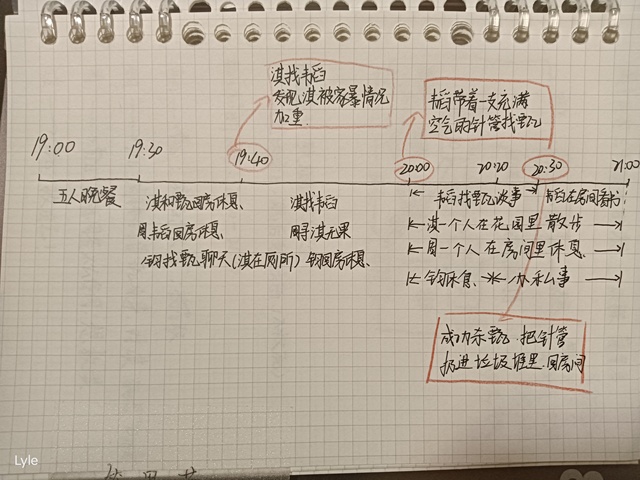 淇找韦韬
发现淇被家暴情况
加重.
韦韬带着一支充满
空气的针管找甄
19:00
19:30
19:40
20:00
20:20
20:30
21:00
五人晚餐
淇和甄回房休息、
淇找韦韬
韦韬找甄谈事
韦韬在房间看书
周韦韬回房休息、
周寻淇无果
淇一个人在花园里散步
钧找甄聊天(淇在厕所)
钧回房休息、
周一个人在房间里休息、
钧休息、
办私事
成功杀甄.把针管
扔进垃圾堆里.回房间
Lyle